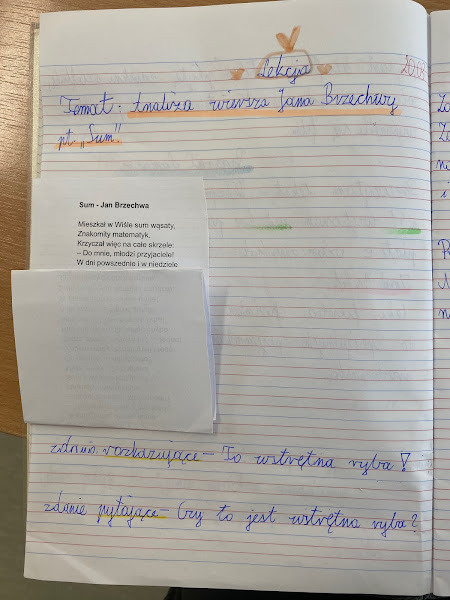 Lekcja 20.03
Temat: Analiza wiersza Jana Brzechwy
pt. „Sum".
Sum - Jan Brzechwa
Mieszkał w Wiśle sum wąsaty,
Znakomity matematyk.
Krzyczał więc na całe skrzele:
– Do mnie, młodzi przyjaciele!
W dni powszednie i w niedziele
zdanie rozkazujące – To wstrętna ryba!
zdanie pytające – Czy to jest wstrętna ryba?